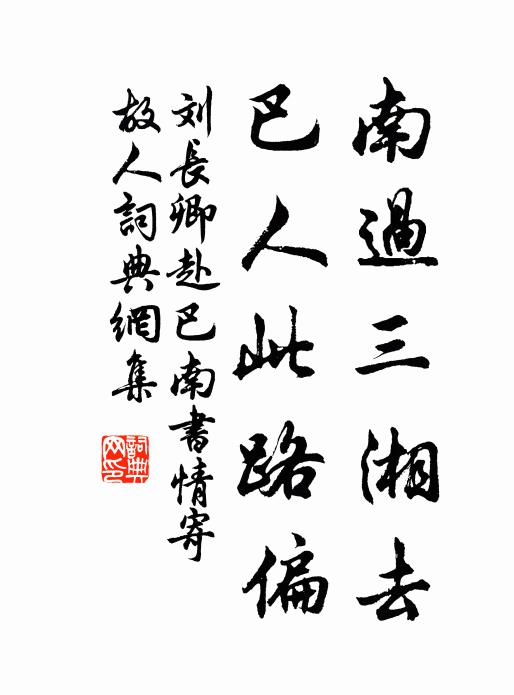 南過三湘去
巴人此路偏
刘長卿赴巴南書情寄
故人詞典網集
詞典
网印